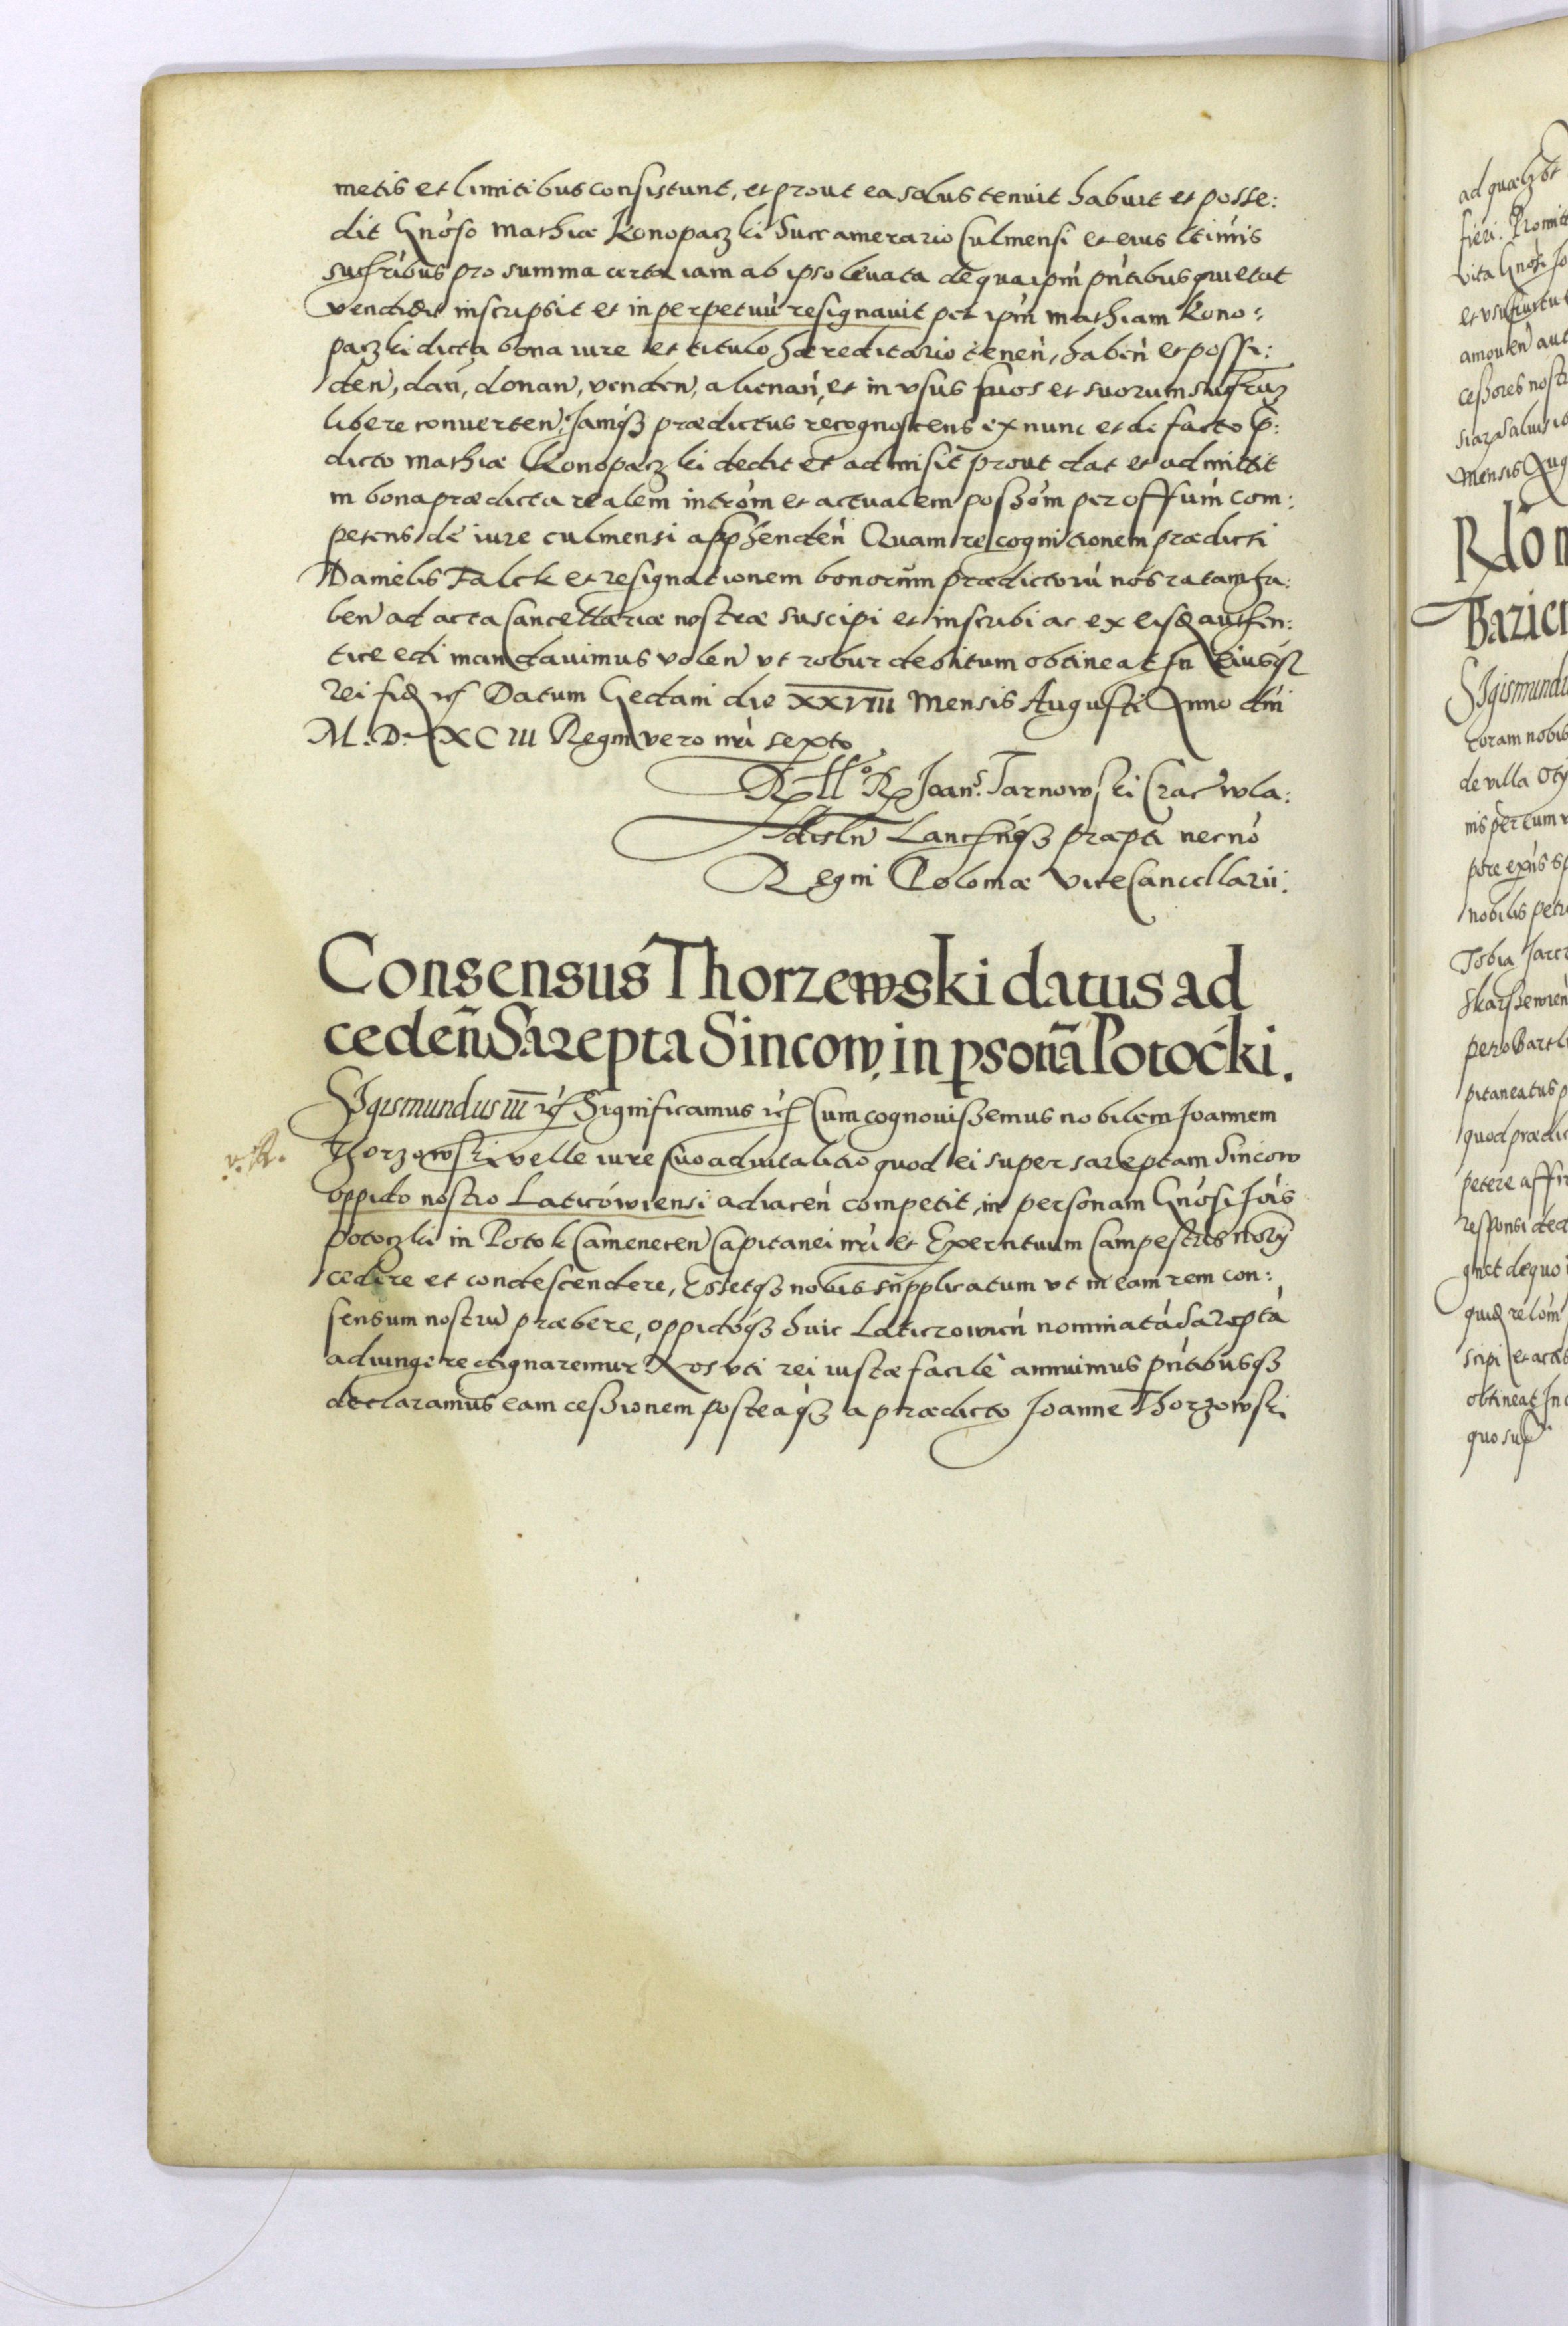 metis et limitibus consistunt, et prout ea solus tenuit habuit et posse:
dit Gnoso Mathiæ Konopaczki Succamerario Culmensi et eius ltimis
sucṡribus pro summa certa iam ab ipso levata de qua ipm pntibus quietat
vendidit inscripsit et in perpetuu resignauit per ipm Mathiam Kono:
paczki dicta bona iure et titulo hæreditario tenen, haben et possi:
den, dan, donan, venden, alienan, et in vsus suos et suorum
libere conuerten, Iamq3 prædictus recognoscens ex nunc et de facto p:
dicto Mathiæ Konopaczki dedit et admisit prout dat et admittit
in bona prædicta realem introm et actualem possom per offum com:
petens de iure culmensi appſhenden Quam recognitionem prædicti
Danielis Falck et resignationem bonorum prædictoru nos ratam ha:
ben ad acta Cancellariæ nostræ suscipi et inscribi ac ex eisd authen:
tice edi mandauimus volen vt robur debitum obtineat In Eiusq3
rei fid rc Datum Gedani die XXVIII Mensis Augusti Anno dni
M. D. XCIII Regni vero nri sexto
Rllo R Joans. Tarnowski Crac wla:
dislu Lancſnq3 præpti necno
Regni Poloniæ ViceCancellarii.
Consensus Thorzewski datus ad
ceden Sarepta Sincow, in psona Potocki.
Sigismundus III rc Significamus rc Cum cognouissemus nobilem Joannem
Thorzowski velle iure suo aduitalitio quod ei super sareptam Sincow
oppido nostro Laticowiensi adiacen competit, in personam Gnosi Jois
potoczki in Potok Camenecen Capitanei nri et Exercituum Campestris
cedere et condescendere, Essetq3 nobis supplicatum vt in eam rem con:
sensum nostru præbere, oppidoq3 huic Laticzowien nominata Sarepta
adiungere dignaremur Nos vti rei iustæ facile annuimus pntibusq3
declaramus eam cessionem posteaq3 a prædicto Joanne Thorzowski
v. R.
ad quælzbt
fieri. Promit
vita Gnosi Jo
et vsufructu
amouen aut
cessores nostr
siar Saluis
Mensis Aug
Rlon
Bazici
Sigismundu
coram nobis
de villa Oty
nobilis petr
Tobia Jarcz
pitaneatus p
quod prædic
petere affir
responsi ded
obtineat In
quo sup